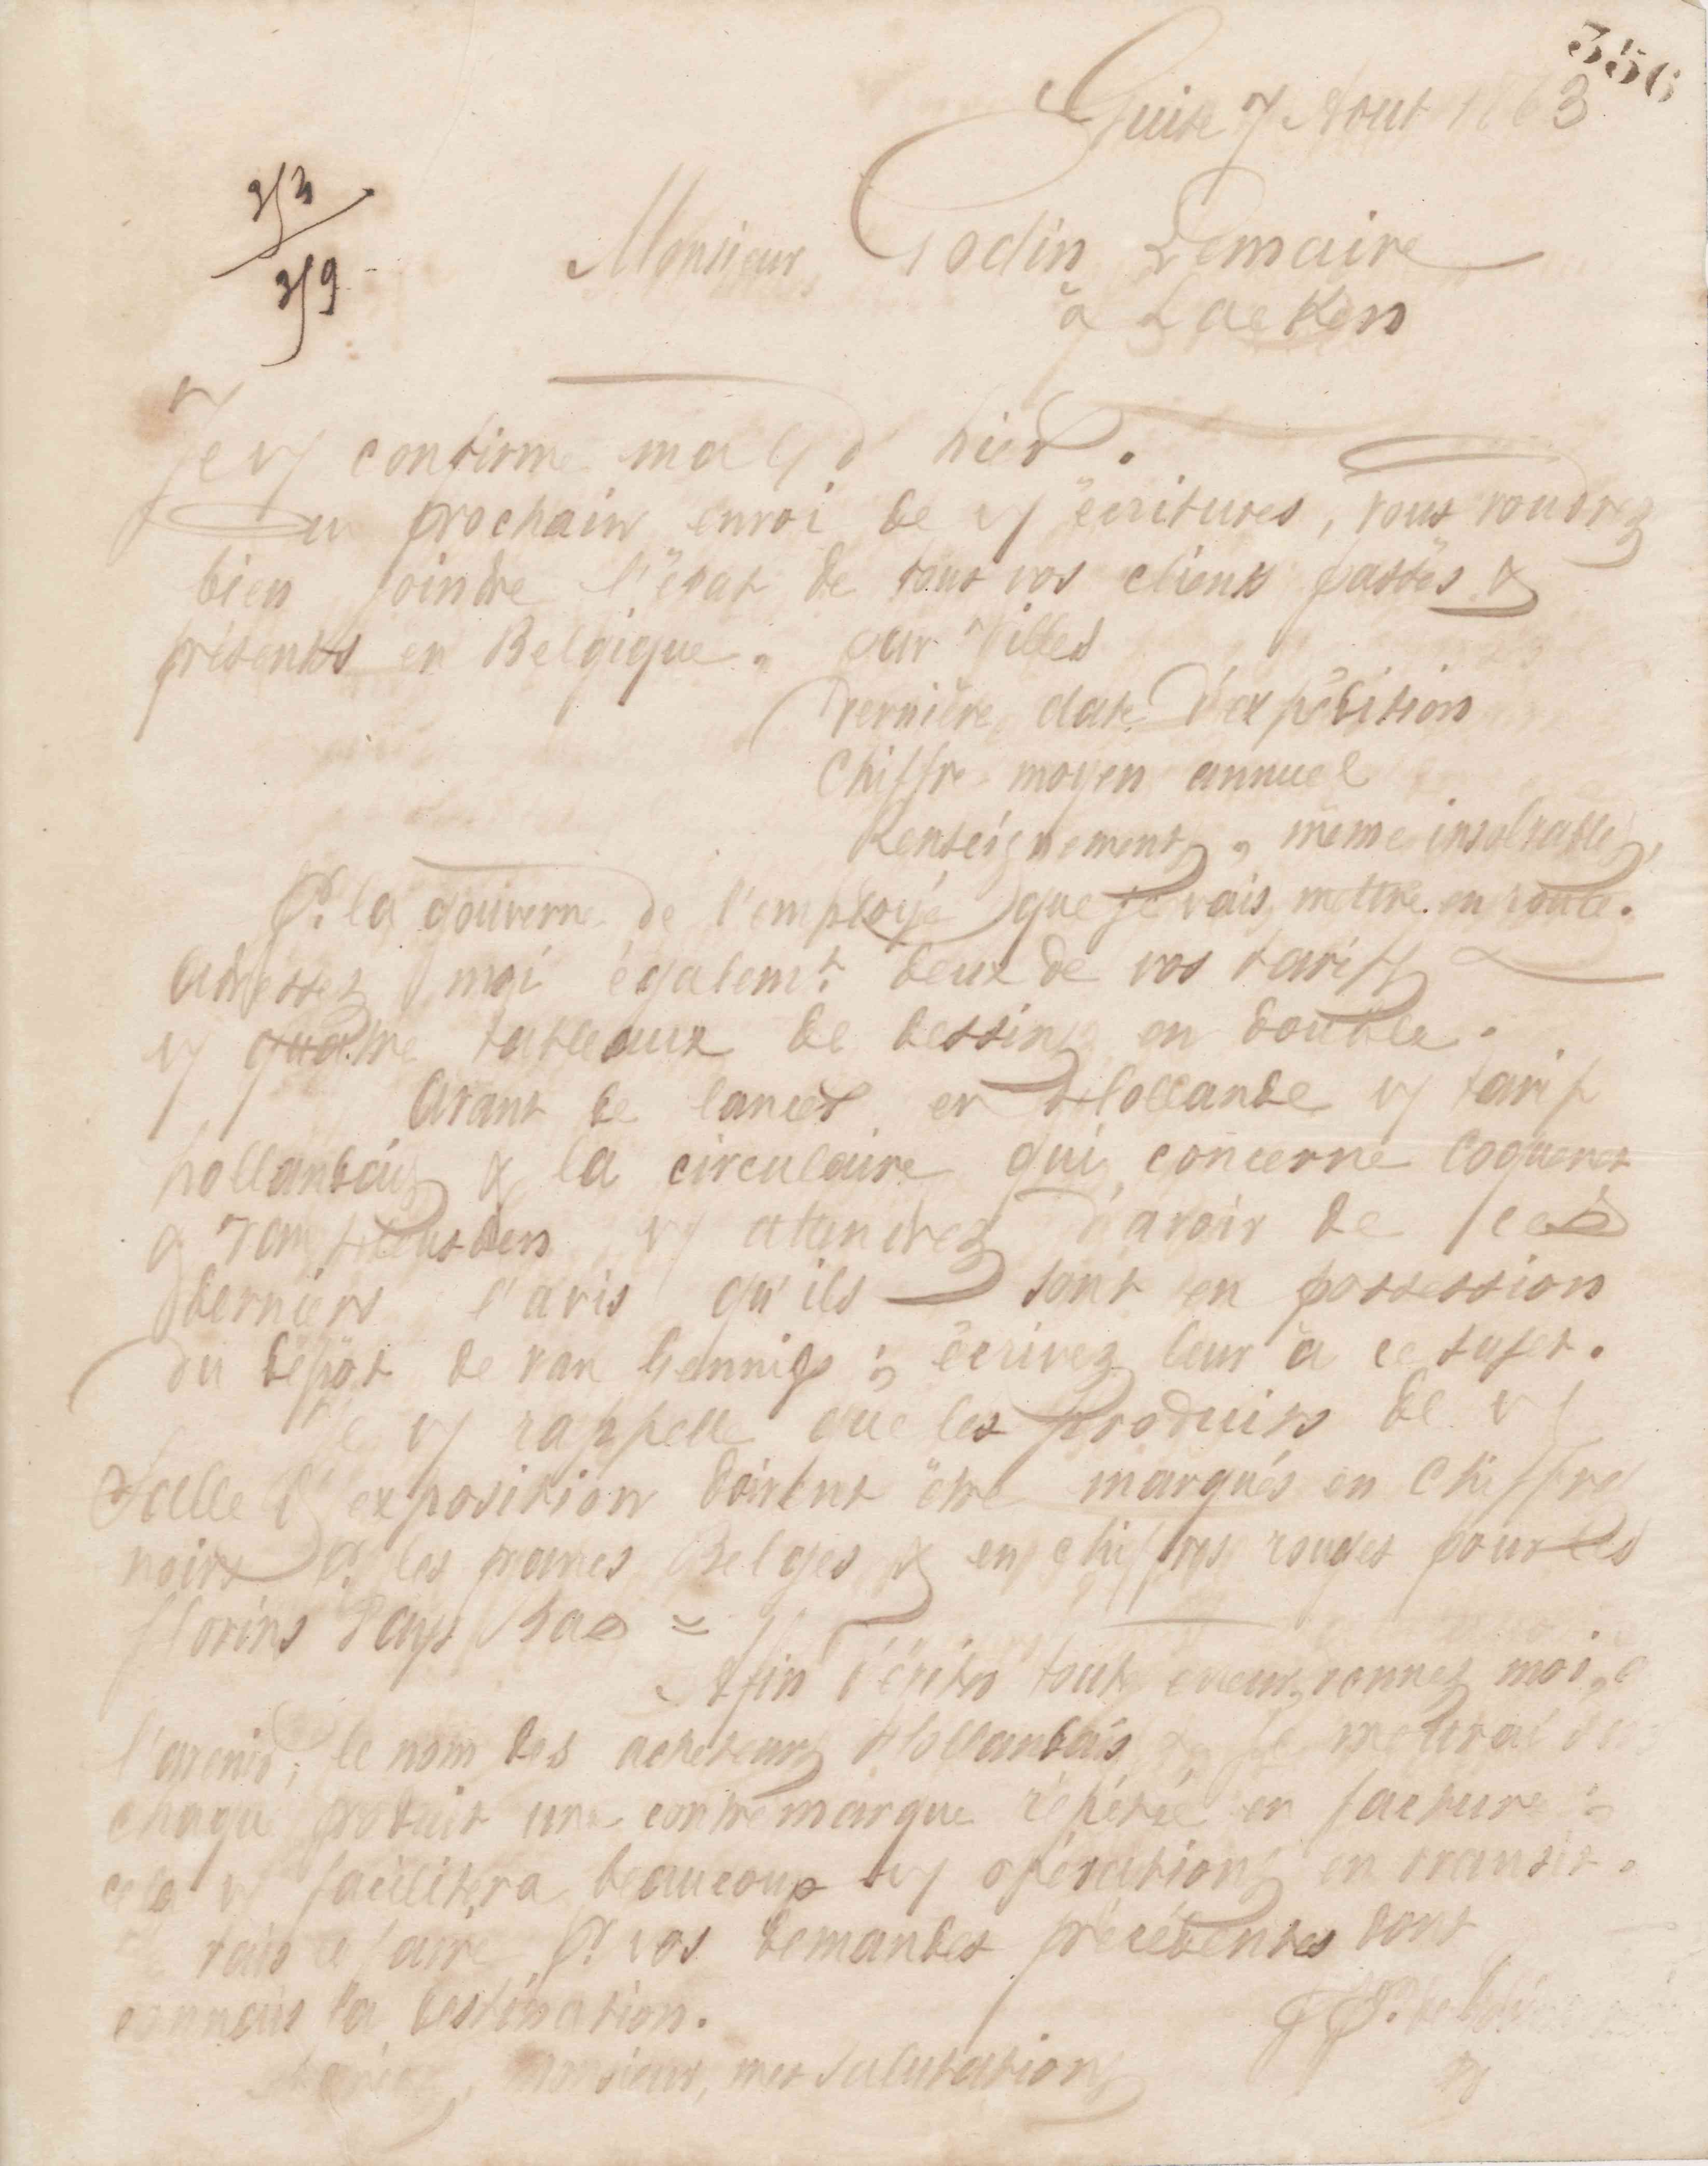 356
Guise 7 Aout 1863
353
359
Monsieur Godin Lemaire
à Laeken
Je vs confirme ma d'hier.
Au prochain envoi de vs écritures, vous voudrez
bien joindre l'état de tous vos clients passés &
présents en Belgique. par Villes
Dernière date d'expédition
Chiffre moyen annuel
Renseignements, même insolvables,
Pr. la gouverne de l'employé que je vais mettre en route.
Adressez moi égalemt. deux de vos tarifs
vs quatre tableaux de dessins en double.
Avant de lancer en Hollande vs tarif
hollandais & la circulaire qui concerne Coqueret
& vs attendrez d'avoir de ces
derniers l'avis qu'ils sont en possession
du dépôt de van Gennip ; écrivez leur à ce sujet.
Je vs rappelle que les produits de vs
Salle d'exposition doivent être marqués en chiffres
noirs Pr. les francs Belges & en chiffres rouges pour les
florins Pays Bas =
Afin d'éviter toute erreur, donnez moi, à
l'avenir, le nom des acheteurs Hollandais & je mettrai sur
chaque produit une contremarque répétée en facture :
cela vs facilitera beaucoup vs opérations en transit.
vais le faire Pr. vos demandes précédentes dont
connais la destination.
Monsieur, mes salutations